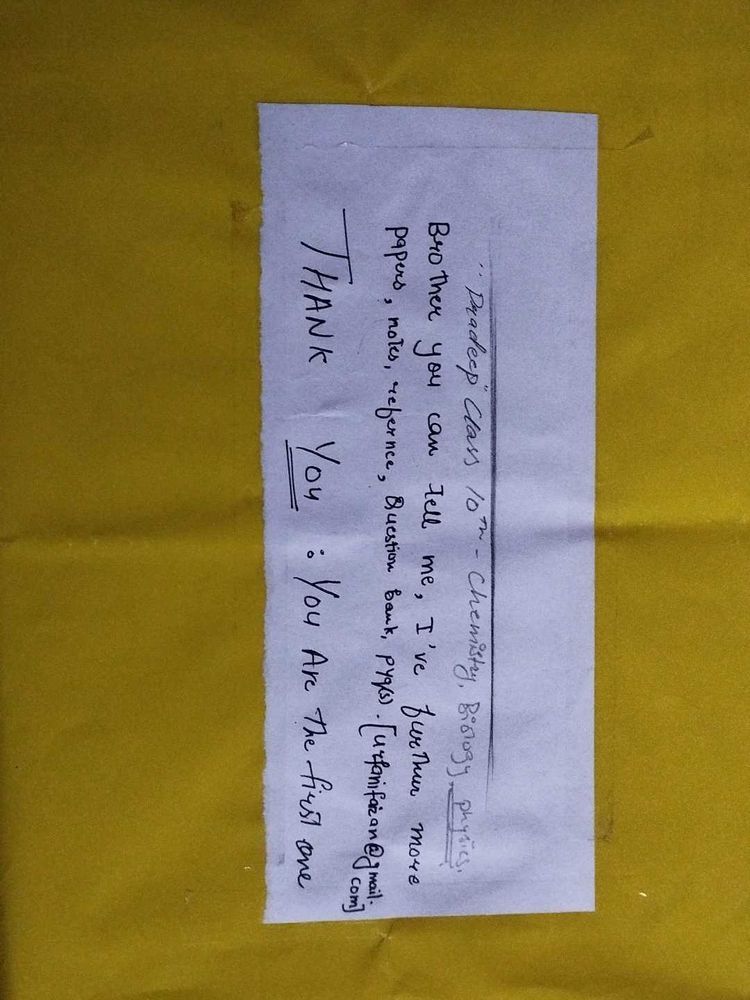 "Pradeep" Class 10th - Chemistry, Biology, physics.
Brother you can tell me, I've further more
papers, notes, refernce, Question bank, pyq(s). [urfanifaizan@gmail.
com]
THANK You : You Are The first one